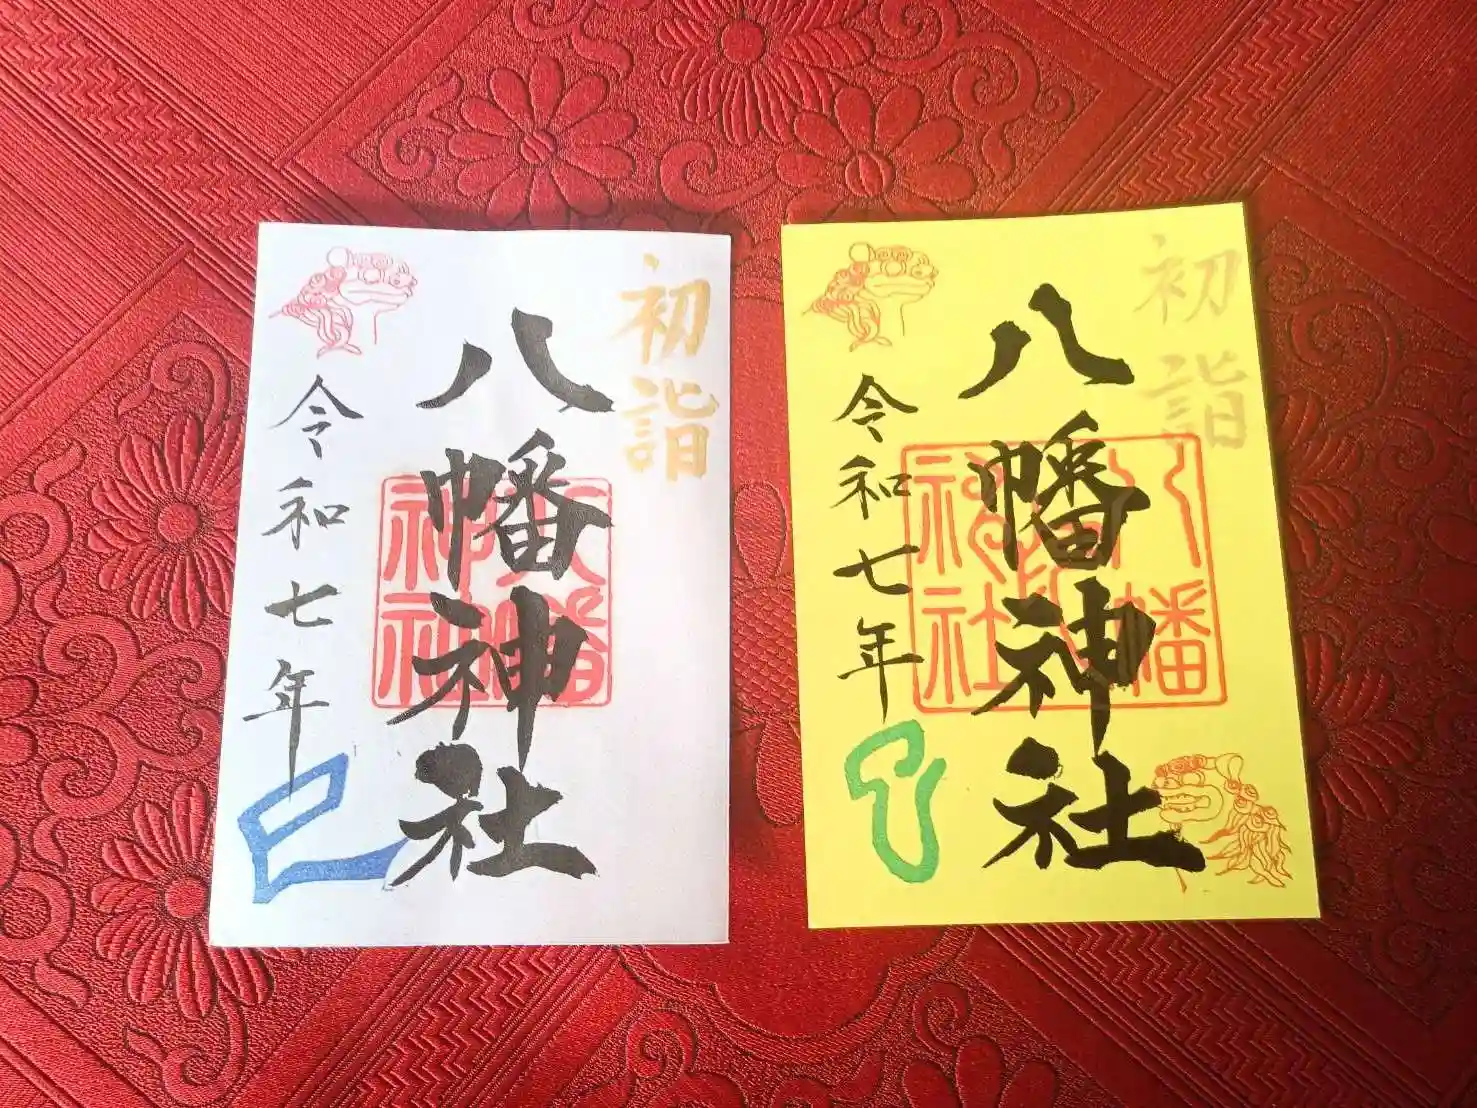 初詣
八幡神社
令和七年
巳
初詣
八幡神社
八幡神社
令和七年